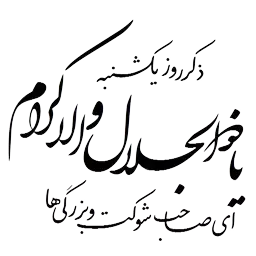 ذکر روز یکشنبه
یا ذوالجلال والاکرام
آی صاحب شوکت و بزرگی‌ها